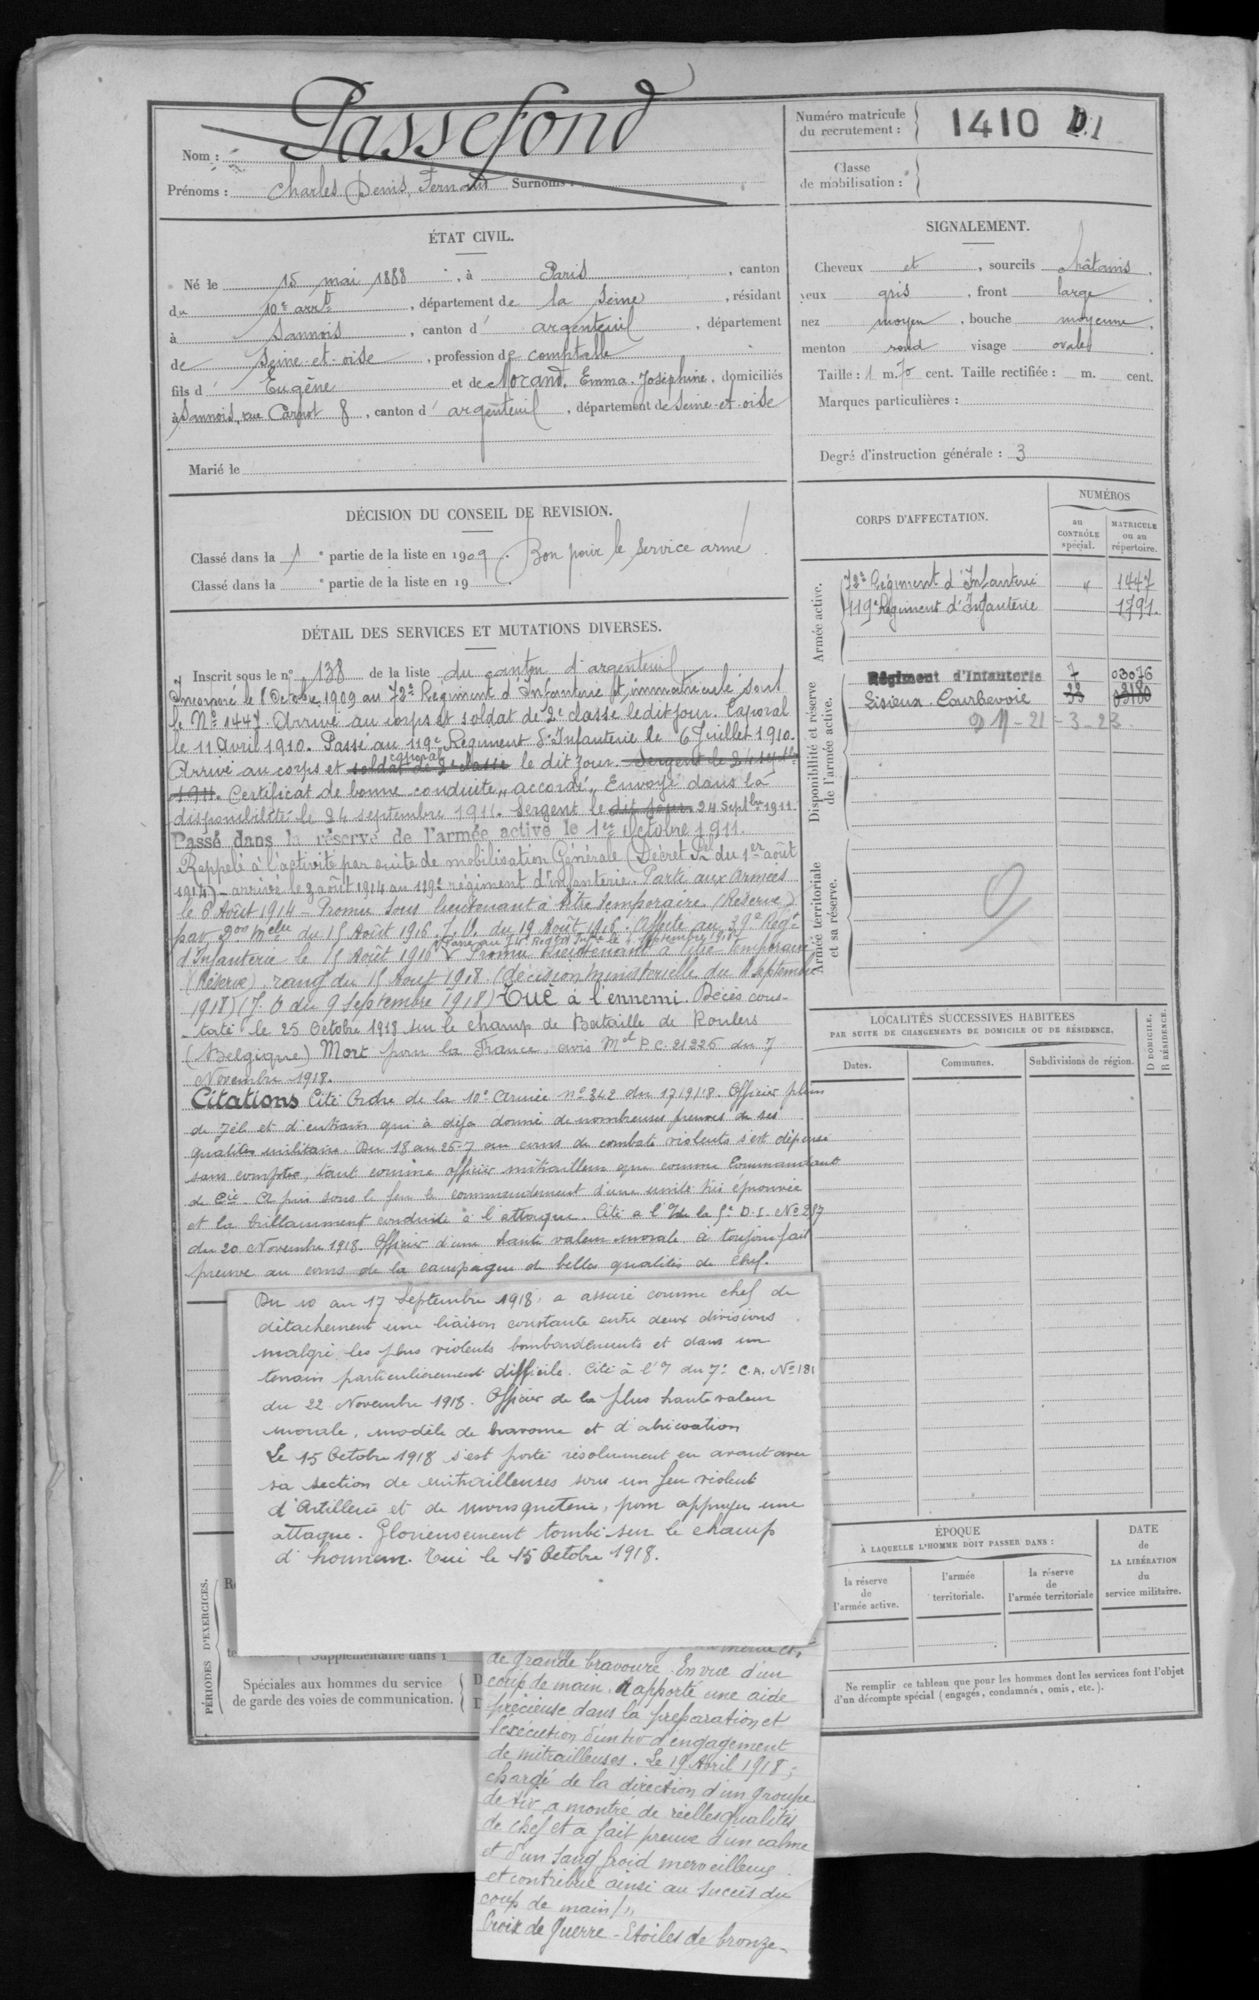 Nom : Passefond
Prénoms : Charles Denis, Fernand Surnoms :
Numéro matricule
du recrutement : 1410 D.1
Classe
de mobilisation :
ÉTAT CIVIL.
Né le 15 mai 1888, à Paris, canton
du 10e arrt, département de la Seine, résidant
à Sannois, canton d' argenteuil, département
de Seine-et-oise, profession de comptable
fils d' Eugène et de Morand, Emma, Joséphine, domiciliés
à Sannois, rue Carnot 8, canton d' argenteuil, département de Seine-et-oise
Marié le
SIGNALEMENT.
Cheveux et, sourcils châtains,
yeux gris, front large,
nez moyen, bouche moyenne,
menton rond visage ovale
Taille : 1 m. 70 cent. Taille rectifiée : m. cent.
Marques particulières :
Degré d'instruction générale : 3
DÉCISION DU CONSEIL DE REVISION.
Classé dans la 1e partie de la liste en 1909. Bon pour le service armé.
Classé dans la e partie de la liste en 19 .
DÉTAIL DES SERVICES ET MUTATIONS DIVERSES.
Inscrit sous le n° 138 de la liste du canton d'argenteuil
Incorporé le 8 Octobre 1909 au 72e Régiment d'Infanterie et immatriculé sous
le No 1447. Arrivé au corps et soldat de 2e classe le dit jour. Caporal
le 11 avril 1910. Passé au 119e Régiment d'Infanterie le 6 Juillet 1910.
Arrivé au corps et soldat de 2e classe caporal le dit jour. Sergent le 24 septbre
1911. Certificat de bonne conduite "accordé". Envoyé dans la
disponibilité le 24 septembre 1911. Sergent le dit jour 24 Septbre 1911.
Passé dans la réserve de l'armée active le 1er Octobre 1911.
Rappelé à l'activité par suite de mobilisation Générale (Décret Pel du 1er août
1914) - arrivé le 3 août 1914 au 119e régiment d'infanterie. Parti aux armées
le 6 Août 1914 - Promu sous lieutenant à titre temporaire (Réserve)
par Don Melle du 15 Août 1916. J.O. du 19 Août 1916. Affecté au 39e Regt
d'Infanterie le 15 Août 1916. Passé au 74e Régt Infie le 4 Septembre 1916. Promu Lieutenant à titre temporaire
(Réserve), rang du 15 Août 1918. (décision ministérielle du 4 Septembre
1918) (J. O du 9 Septembre 1918) Tué à l'ennemi. Décès cons-
-taté le 25 Octobre 1918 sur le champ de Bataille de Roulers
(Belgique) Mort pour la France avis Mel P.C. 21226 du 7
Novembre 1918.
Citations Cité Ordre de la 10e Armée no 342 du 17/9/18. Officier plein
de zèle et d'entrain qui a déja donné de nombreuses preuves de ses
qualités militaires. Du 18 au 26-7 au cours de combats violents s'est dépensé
sans compter, tant comme officier mitrailleur que comme Commandant
de Cie. A pris sous le feu le commandement d'une unité très éprouvée
et la brillamment conduite à l'attaque. Cité a l'O de la 5e D.I. No 257
du 20 Novembre 1918. Officier d'une haute valeur morale. à toujours fait
preuve au cours de la campagne de belles qualités de chef.
Du 10 au 17 Septembre 1918, a assuré comme chef de
détachement une liaison constante entre deux divisions
malgré les plus violents bombardements et dans un
terrain particulièrement difficile. Cité à l'O du 7e C.A. No 181
du 22 Novembre 1918. Officier de la plus haute valeur
morale, modèle de bravoure et d'abnégation
Le 15 Octobre 1918 s'est porté résolument en avant avec
sa section de mitrailleuses sous un feu violent
d'Artillerie et de mousqueterie, pour appuyer une
attaque. Glorieusement tombé sur le champ
d'honneur. Tué le 15 Octobre 1918.
de grande bravoure. En vue d'un
coup de main. A apporté une aide
précieuse dans la préparation et
l'exécution d'un tir d'engagement
de mitrailleuses. Le 19 Avril 1918;
chargé de la direction d'un groupe
de tir a montré de réelles qualités
de chef et a fait preuve d'un calme
et d'un sang froid merveilleux
et contribué ainsi au succès du
coup de main/"
Croix de Guerre - Etoiles de bronze -
PÉRIODES D'EXERCICES.
Supplémentaire dans l
Spéciales aux hommes du service
de garde des voies de communication.
CORPS D'AFFECTATION.
NUMÉROS
au CONTRÔLE spécial.
MATRICULE ou au répertoire.
Armée active.
72e Régiment d'Infanterie " 1447
119e Régiment d'Infanterie 1791.
Disponibilité et réserve de l'armée active.
Régiment d'Infanterie 7 03076
Lisieux. Courbevoie 33
21-3-23
Armée territoriale et sa réserve.
LOCALITÉS SUCCESSIVES HABITÉES
PAR SUITE DE CHANGEMENTS DE DOMICILE OU DE RÉSIDENCE.
Dates. Communes. Subdivisions de région. D DOMICILE. R RÉSIDENCE.
ÉPOQUE
À LAQUELLE L'HOMME DOIT PASSER DANS :
la réserve de l'armée active.
l'armée territoriale.
la réserve de l'armée territoriale
DATE de LA LIBÉRATION du service militaire.
Ne remplir ce tableau que pour les hommes dont les services font l'objet
d'un décompte spécial (engagés, condamnés, omis, etc.).